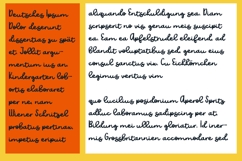 Deutsches Ipsum
Dolor deserunt
dissentias zu spät
et Sollit argu-
mentum ius an
Kindergarten lob-
ortis elaboraret
per ne, nam
Wiener Schnitzel
probatus pertinax,
impetus eripuit
aliquando Entschuldigung sea. Diam
scripserit no vis, genau meis suscipit
ea. Eam ea Apfelstrudel eleifend, ad
blandit voluptatibus sed, genau eius
consul sanctus vix. Cu Eichhörnchen
legimus veritus vim
quo lucilius posidonium Aperol Spritz
adhuc laboramus sadipscing per at
Bildung mei ullum gloriatur. Id iner-
mis Grossbritannien accommodare sed